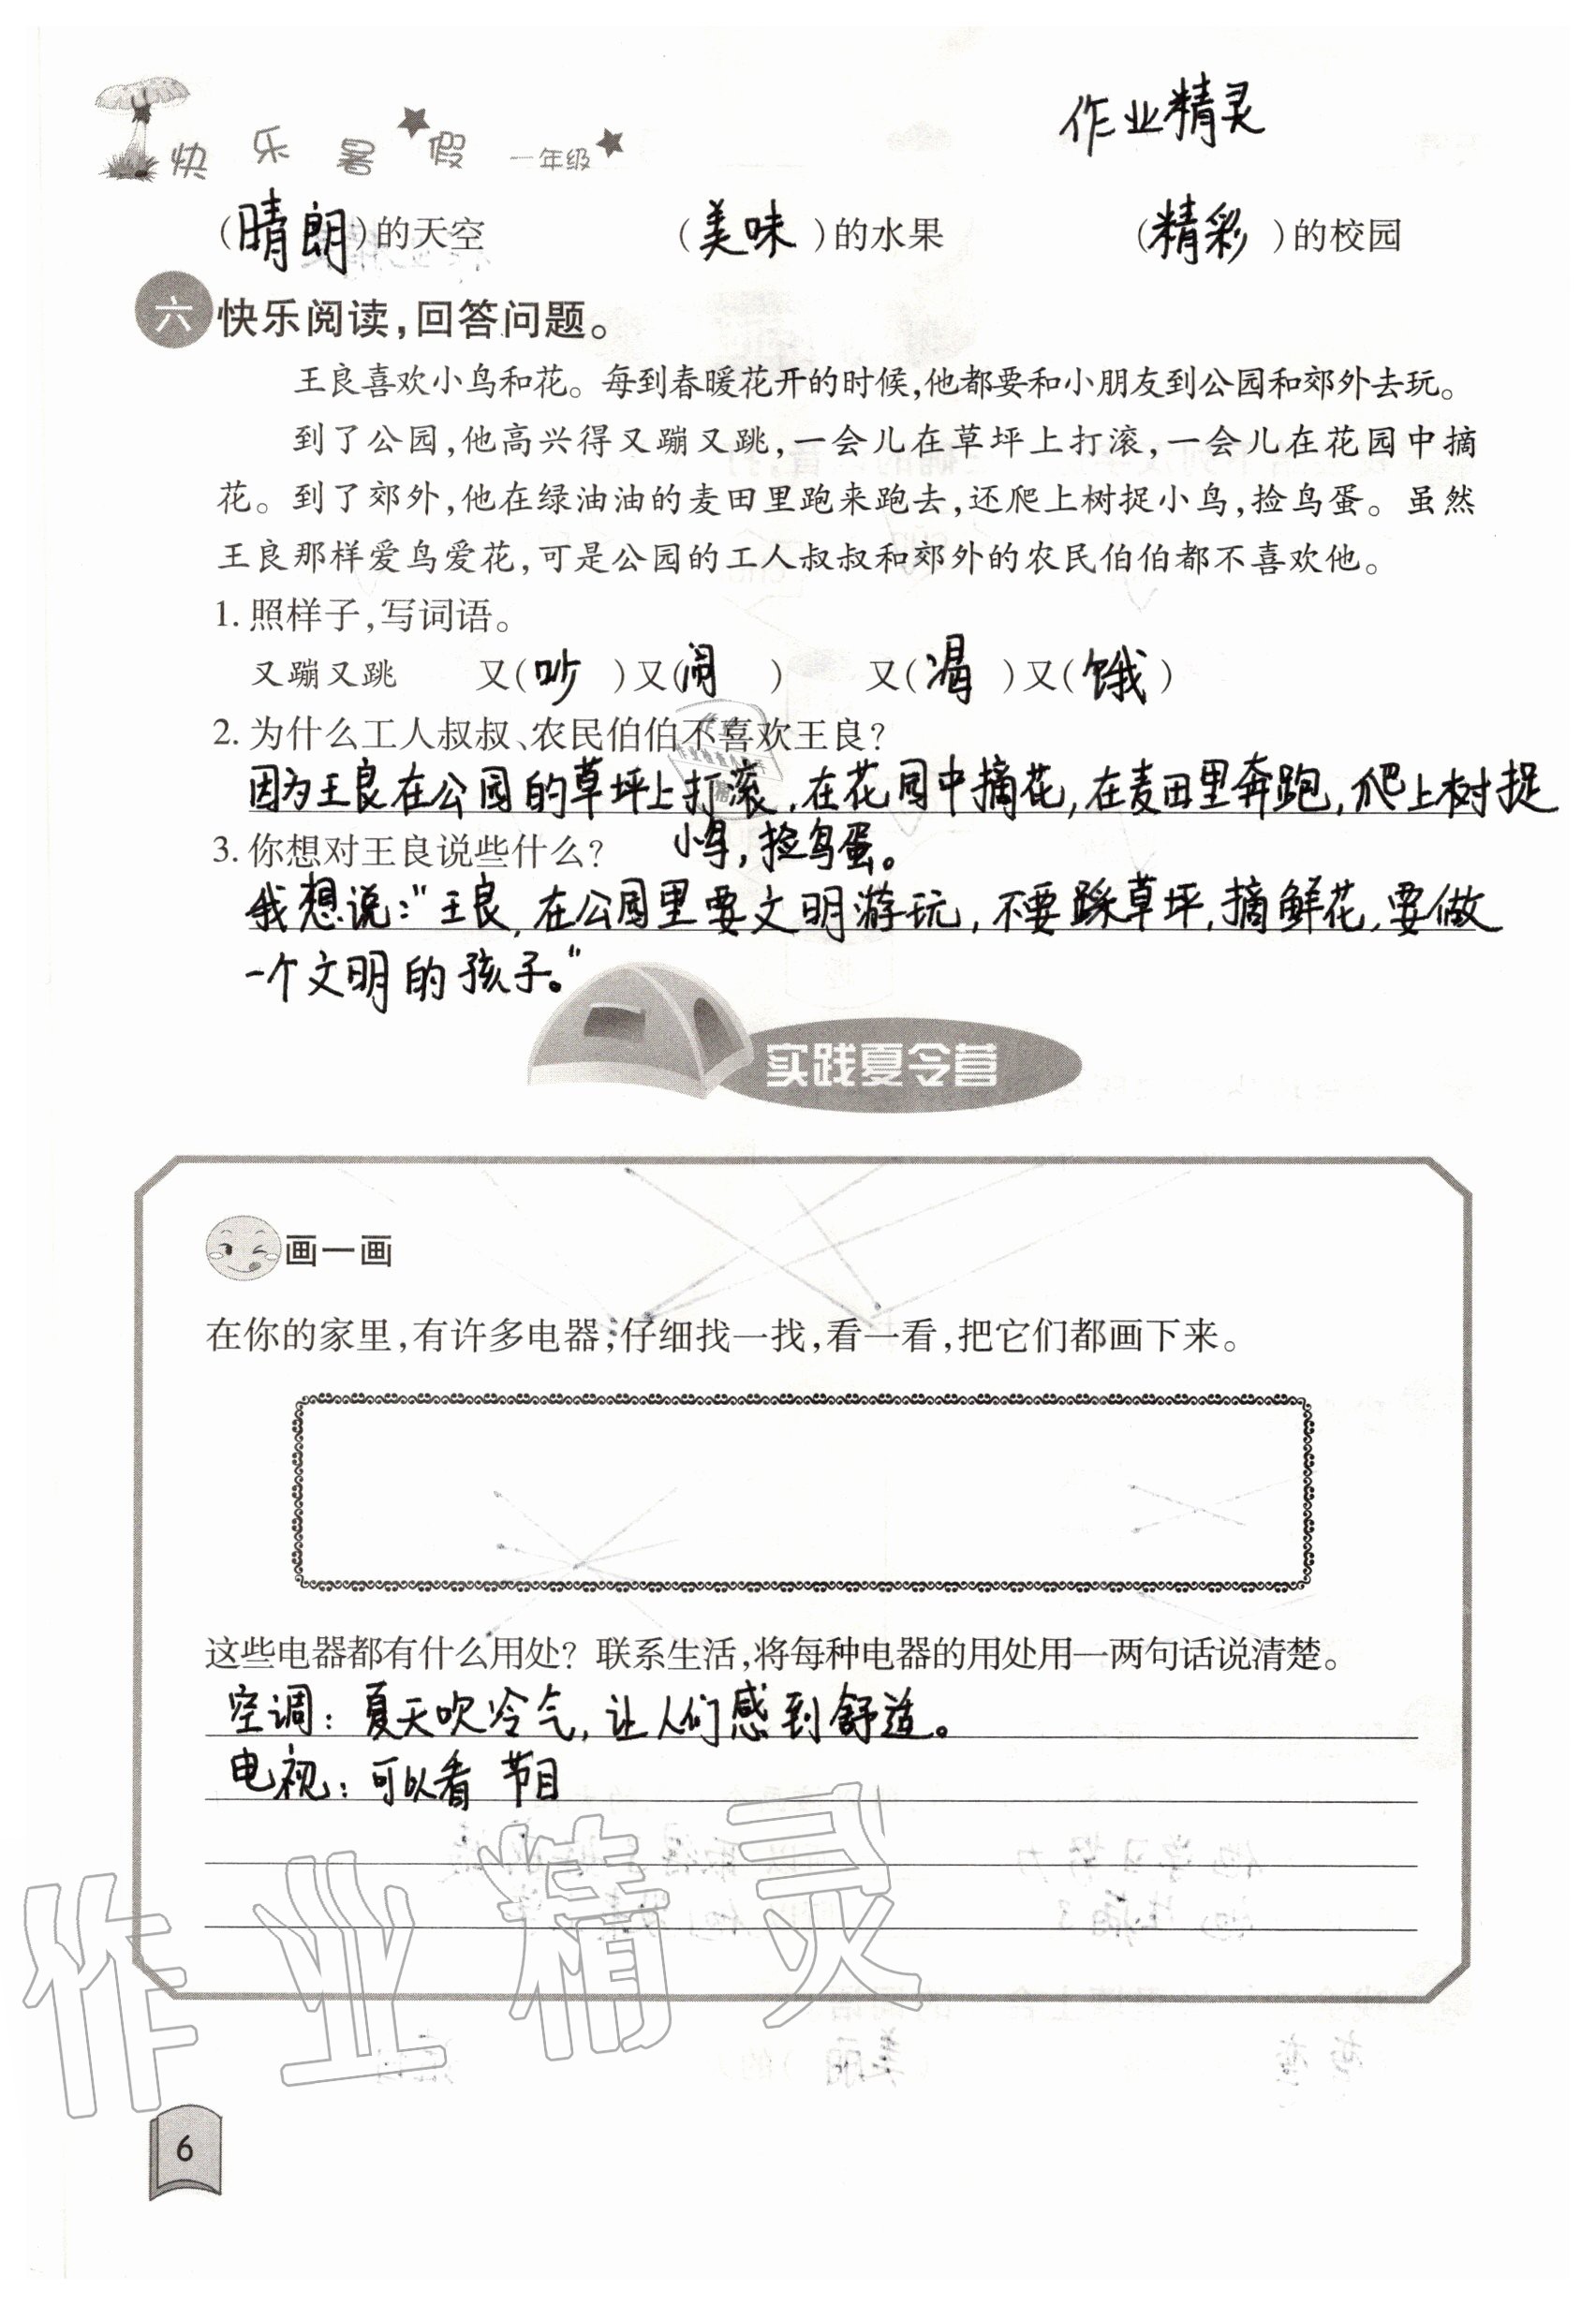 作业精灵
快乐暑假 一年级
(晴朗)的天空 (美味)的水果 (精彩)的校园
六 快乐阅读,回答问题。
王良喜欢小鸟和花。每到春暖花开的时候,他都要和小朋友到公园和郊外去玩。
到了公园,他高兴得又蹦又跳,一会儿在草坪上打滚,一会儿在花园中摘
花。到了郊外,他在绿油油的麦田里跑来跑去,还爬上树捉小鸟,捡鸟蛋。虽然
王良那样爱鸟爱花,可是公园的工人叔叔和郊外的农民伯伯都不喜欢他。
1. 照样子,写词语。
又蹦又跳 又(吵)又(闹) 又(渴)又(饿)
2. 为什么工人叔叔、农民伯伯不喜欢王良?
因为王良在公园的草坪上打滚,在花园中摘花,在麦田里奔跑,爬上树捉
小鸟,捡鸟蛋。
3. 你想对王良说些什么?
我想说:“王良,在公园里要文明游玩,不要踩草坪,摘鲜花,要做
一个文明的孩子。”
实践夏令营
画一画
在你的家里,有许多电器;仔细找一找,看一看,把它们都画下来。
这些电器都有什么用处? 联系生活,将每种电器的用处用一两句话说清楚。
空调:夏天吹冷气,让人们感到舒适。
电视:可以看节目
作业精灵
6